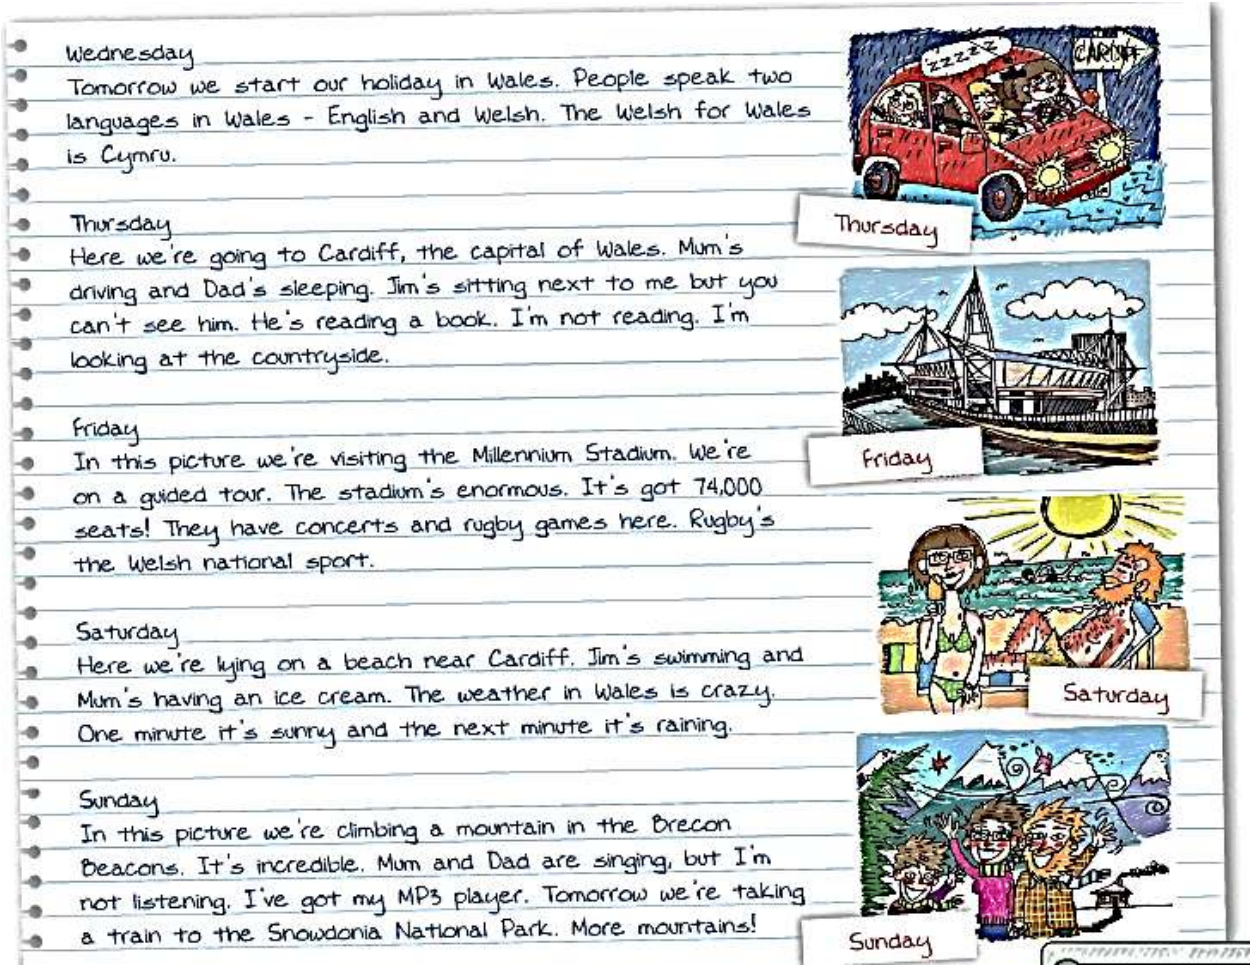 Wednesday
Tomorrow we start our holiday in Wales. People speak two
languages in Wales - English and Welsh. The Welsh for Wales
is Cymru.
Thursday
Here we're going to Cardiff, the capital of Wales. Mum's
driving and Dad's sleeping. Jim's sitting next to me but you
can't see him. He's reading a book. I'm not reading. I'm
looking at the countryside.
Friday
In this picture we're visiting the Millennium Stadium. We're
on a guided tour. The stadium's enormous. It's got 74,000
seats! They have concerts and rugby games here. Rugby's
the Welsh national sport.
Saturday
Here we're lying on a beach near Cardiff. Jim's swimming and
Mum's having an ice cream. The weather in Wales is crazy.
One minute it's sunny and the next minute it's raining.
Sunday
In this picture we're climbing a mountain in the Brecon
Beacons. It's incredible. Mum and Dad are singing, but I'm
not listening. I've got my MP3 player. Tomorrow we're taking
a train to the Snowdonia National Park. More mountains!
zzzzz
CARDIFF
Thursday
Friday
Saturday
Sunday